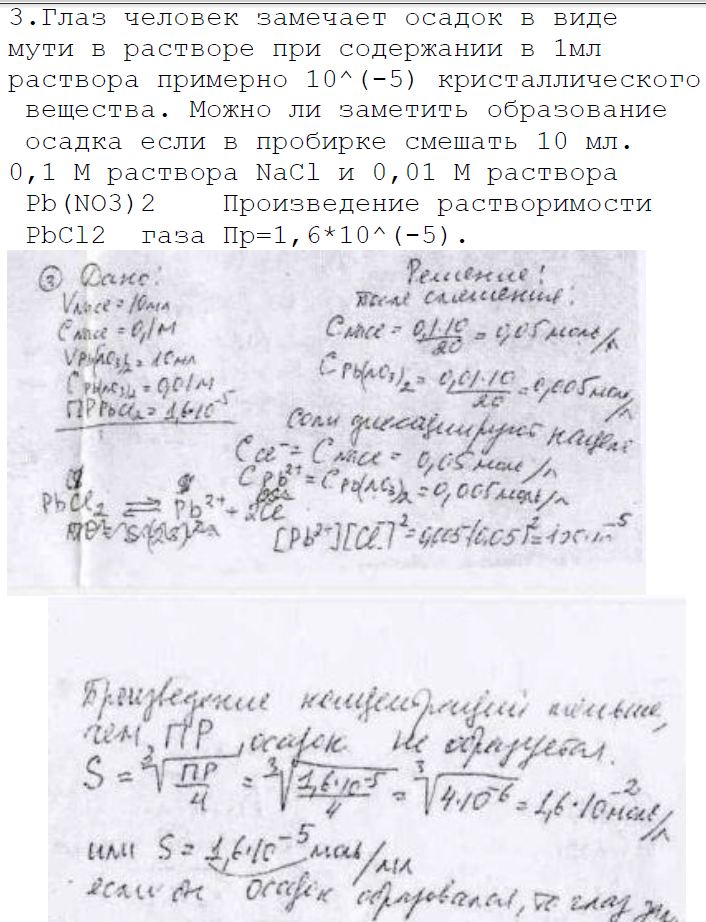 3.Глаз человек замечает осадок в виде
мути в растворе при содержании в 1мл
раствора примерно 10^(-5) кристаллического
вещества. Можно ли заметить образование
осадка если в пробирке смешать 10 мл.
0,1 М раствора NaCl и 0,01 М раствора
Pb(NO3)2 Произведение растворимости
PbCl2 газа Пр=1,6*10^(-5).
③ Дано:
V NaCl = 10 мл
C NaCl = 0,1 M
V Pb(NO3)2 = 10 мл
C Pb(NO3)2 = 0,01 M
ПР PbCl2 = 1,6·10^-5
PbCl2 ⇌ Pb^2+ + 2Cl^-
Решение:
После смешения:
C NaCl = 0,1·10/20 = 0,05 моль/л
C Pb(NO3)2 = 0,01·10/20 = 0,005 моль/л
Соли диссоциируют нацело
C Cl^- = C NaCl = 0,05 моль/л
C Pb^2+ = C Pb(NO3)2 = 0,005 моль/л
[Pb^2+][Cl^-]^2 = 0,005(0,05)^2 = 1,25·10^-5
Произведение концентраций меньше,
чем ПР, осадок не образуется.
S = ∛(ПР/4) = ∛(1,6·10^-5/4) = ∛(4·10^-6) = 1,6·10^-2 моль/л
или S = 1,6·10^-5 моль/мл
если бы осадок образовался, то глаз